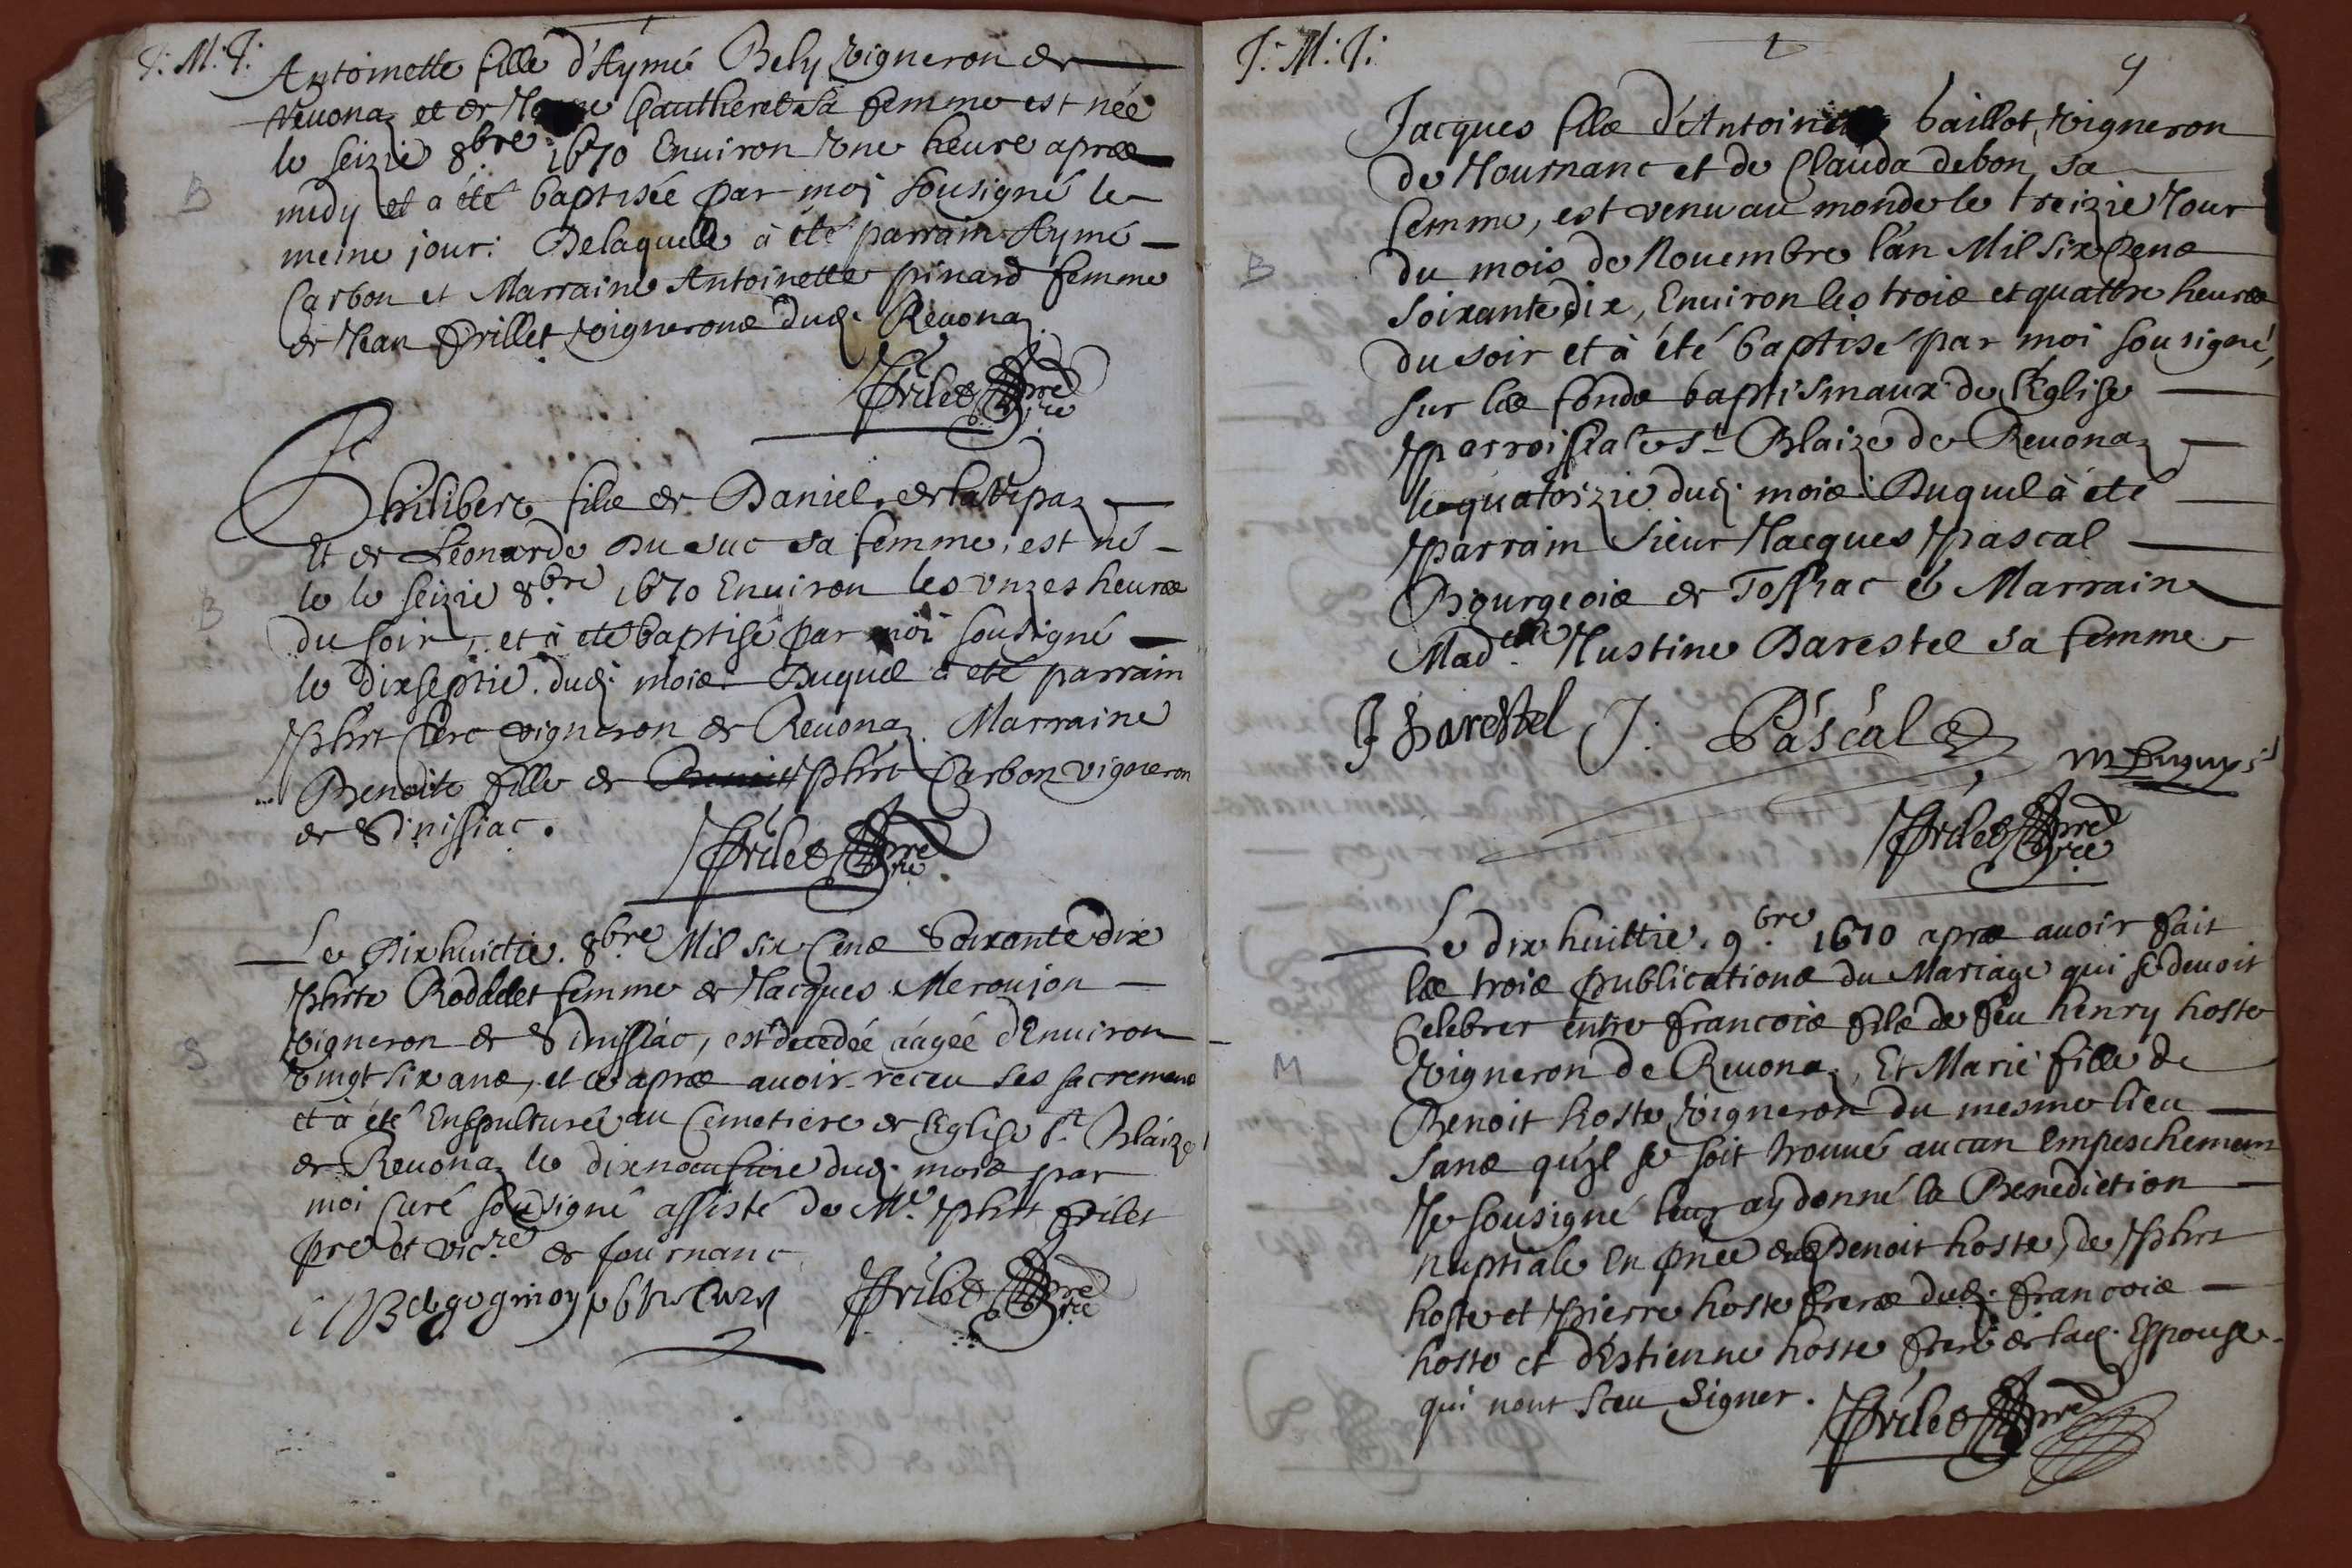 J: M: J:
Antoinette fille d'Aymé Bely vigneron de
Revonaz et de Gautheret sa femme est née
le seizie 8bre 1670 Environ vne heure apres
midy et a été baptisée par moi sousigné le
meme jour: Delaquelle à été parrain Aymé
Carbon et Marraine Antoinette pinard femme
de Jean Prillet vignerons dud. Revonaz
Prilet pre
B
Philibert filz de Daniel de
Et de Léonarde Du suc sa femme, est né
le le seizie 8bre 1670 Enuiron les vnzes heures
du soir, et à eté baptisé par moi sousigné
le dixseptie. dud. mois. Duquel à eté parrain
Phirt Clerc vigneron de Reuonaz. Marraine
Benoite fille de Phirt Carbon vigneron
de Sinissiac.
Prilet pre
B
Le Dixhuictie. 8bre Mil six Cens Soixante dix
Phirte Roddet femme de Jacques Meroujon
vigneron de Sinissiac, est decedée aágée d'Enuiron
vingt six ans, et ce apres auoir receu ses sacremens
et à été Ensepulturée au Cemetiere de l'Eglise St. Blaize
de Reuonaz le dud. mois par
moi Curé sousigné assisté de Mre. Phirt Prilet
pre et vicre de Journanc
S
Prilet pre
J: M: J:
4
Jacques filz d'Antoine baillot, vigneron
de Journanc et de Clauda debon, sa
femme, est venu au monde le treizie Jour
du mois de Nouembre l'an Mil six Cens
soixante dix, Enuiron les trois et quattre heures
du soir et à été baptisé par moi sousigné,
sur les fonds baptismaux de l'Eglise
parroissiale St Blaize de Reuonaz
le quatorzie dud. mois: Duquel à été
parrain Sieur Jacques Pascal
Bourgeois de Tossiac & Marraine
Madelle Justine Darestel sa femme
J Darestel J: Páscál
Prilet pre
B
Le dix huittie. 9bre 1670 apres auoir fait
les trois publications du Mariage qui se deuoit
Celebrer entre francois filz de feu henry hoste
vigneron de Reuonaz, Et Marie fille de
Benoit hoste, vigneron du mesme lieu
Sans qu'il se soit trouué aucun Empeschemem
Je sousigné leur ay donné la Benediction
nuptiale En pnce dud Benoit hoste, de Phirt
hoste et Pierre hoste freres dud. francois
hoste et d'Estienne hoste frere de lad. Espouse.
qui n'ont sceu signer.
Prilet pre
M